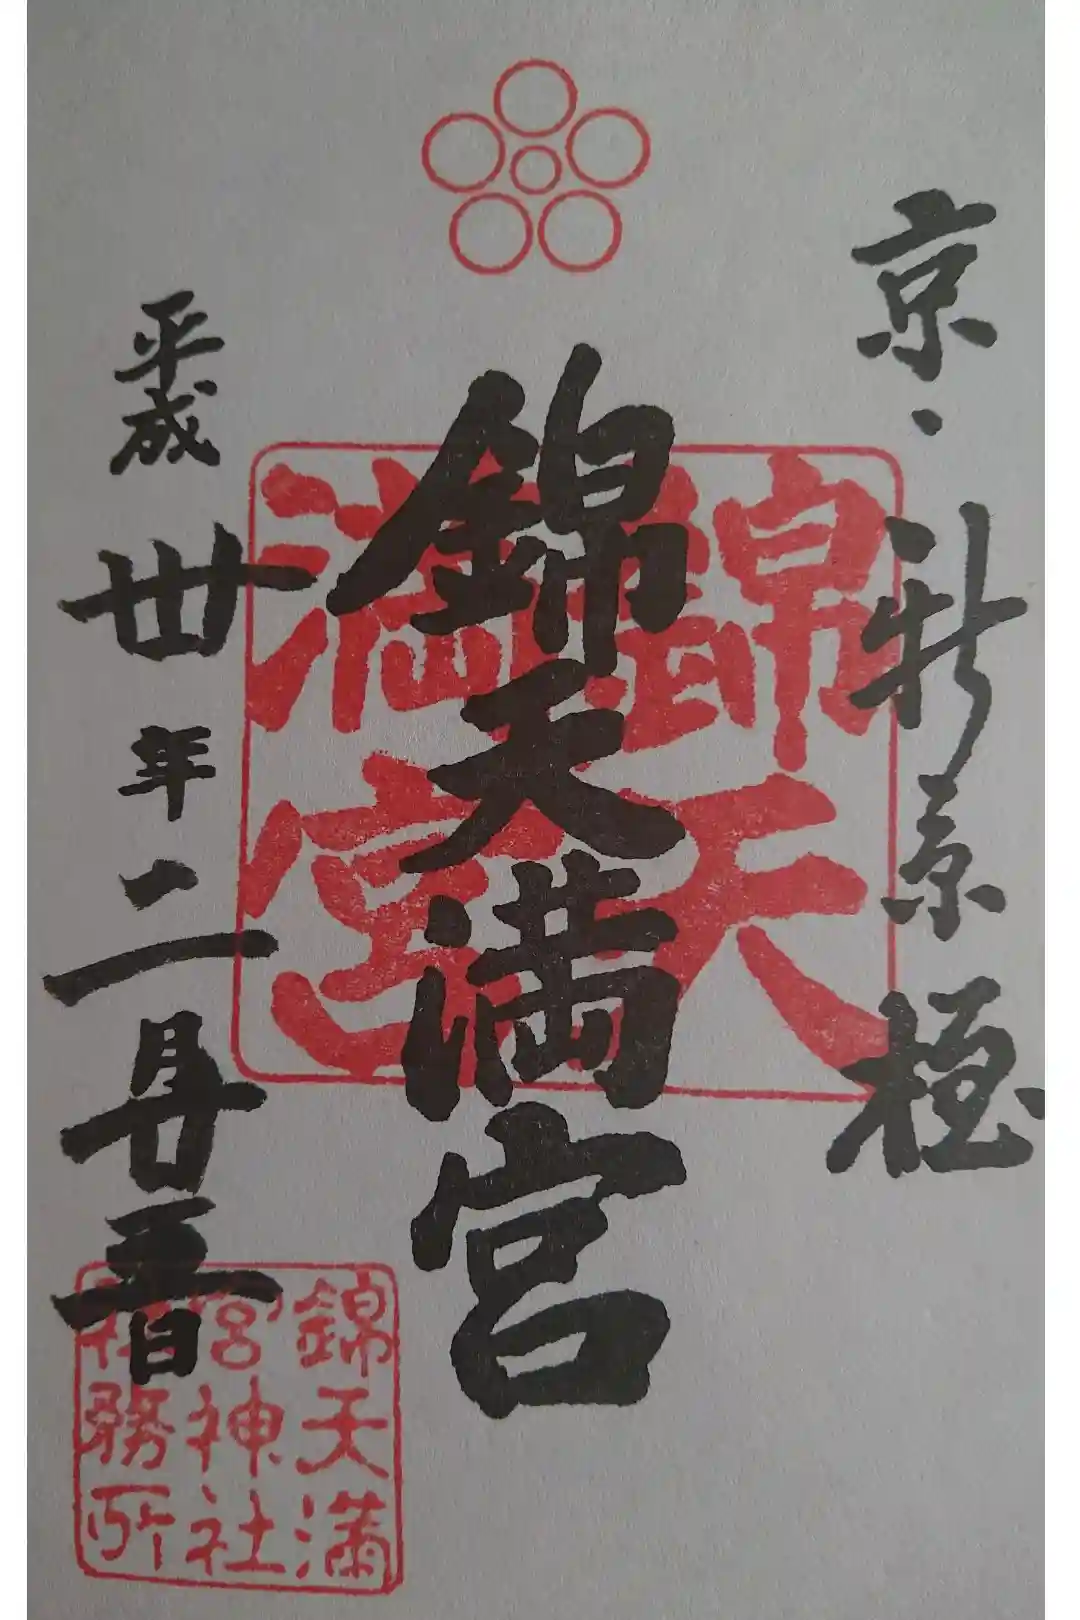 京、新京極
錦天満宮
平成丗年二月廿五日
錦天
満宮
錦天満
宮神社
社務所